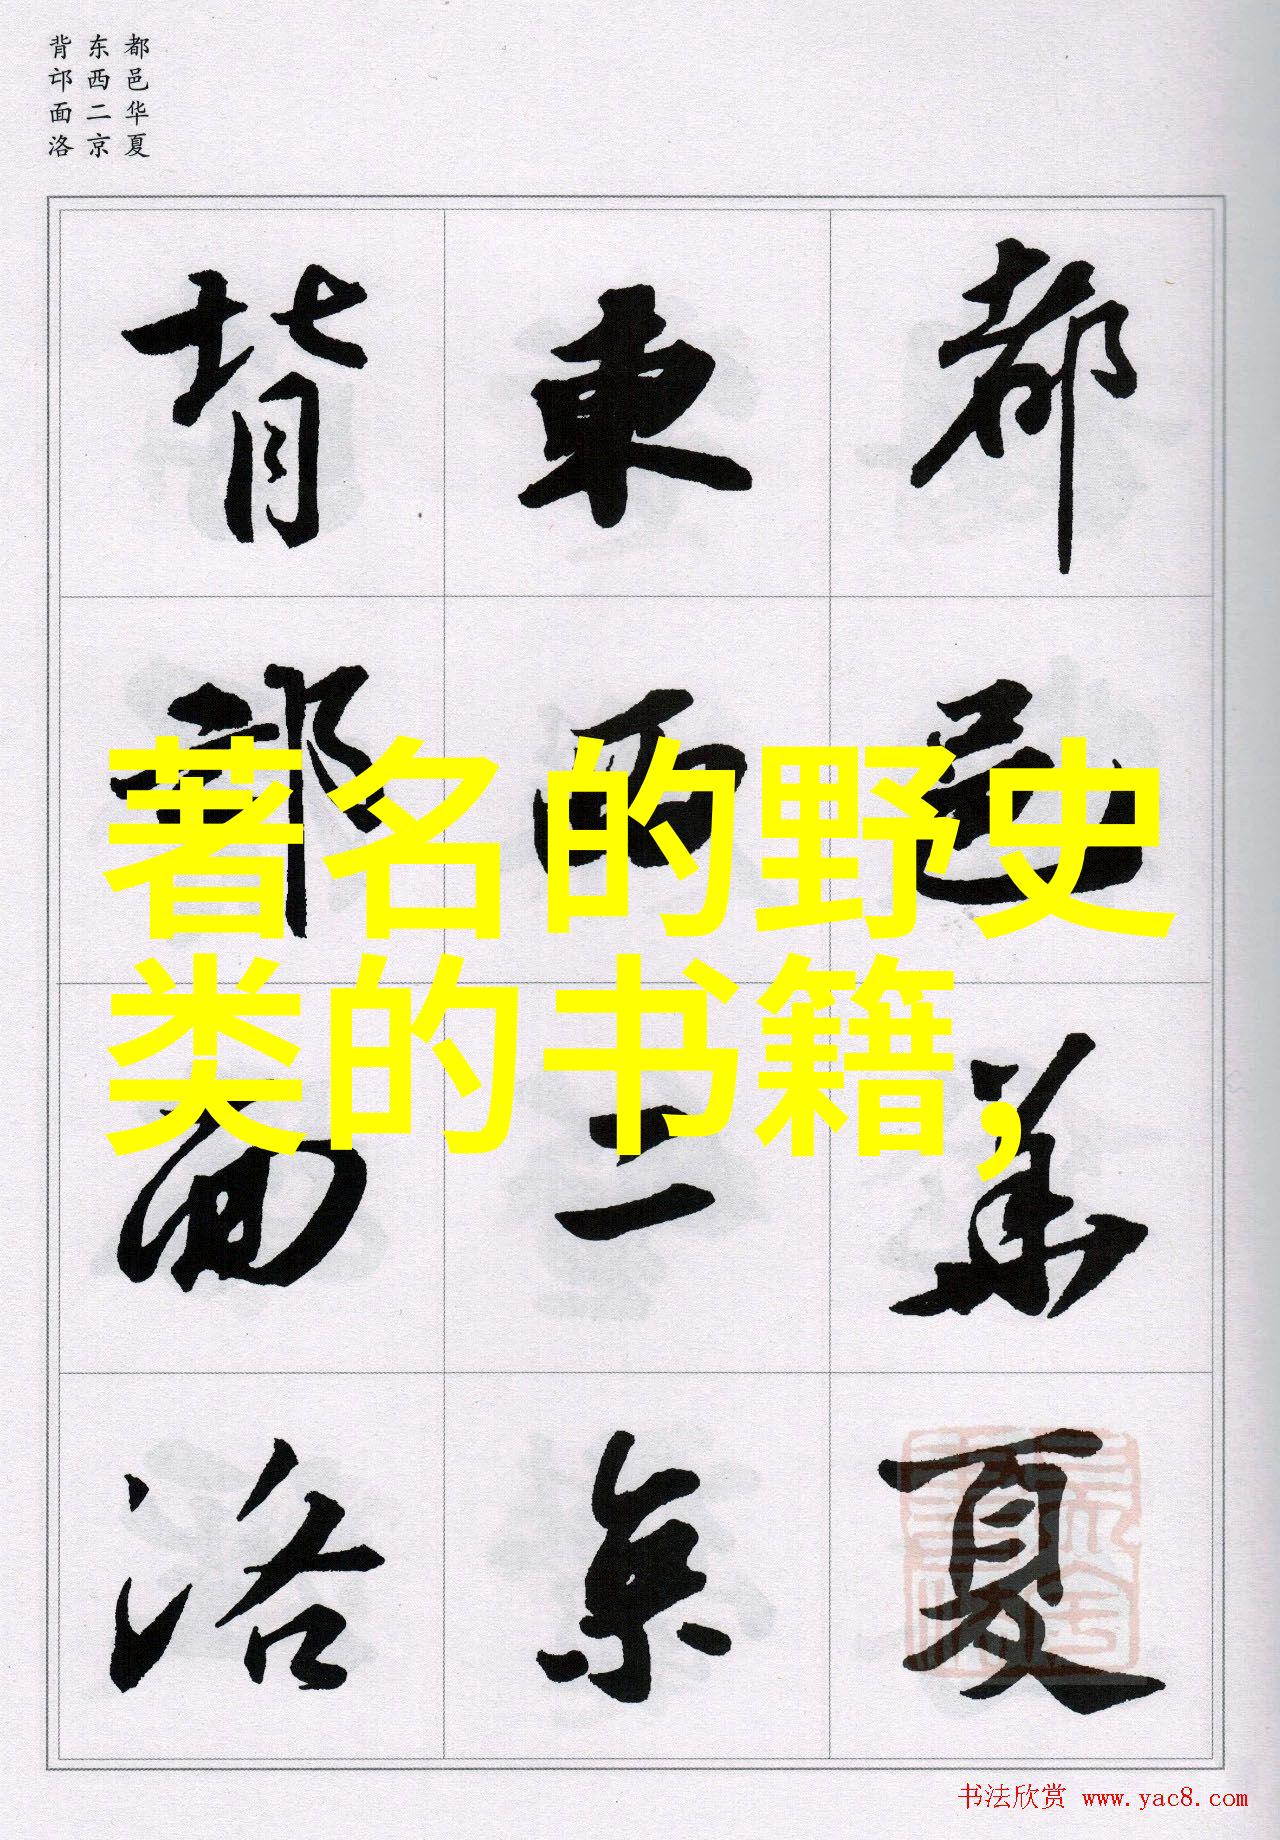 都邑华夏
东西二京
背邙面洛
都邑華夏
東西二京
背邙面洛
著名的野史
类的书籍,
书法欣赏 www.yac8.com